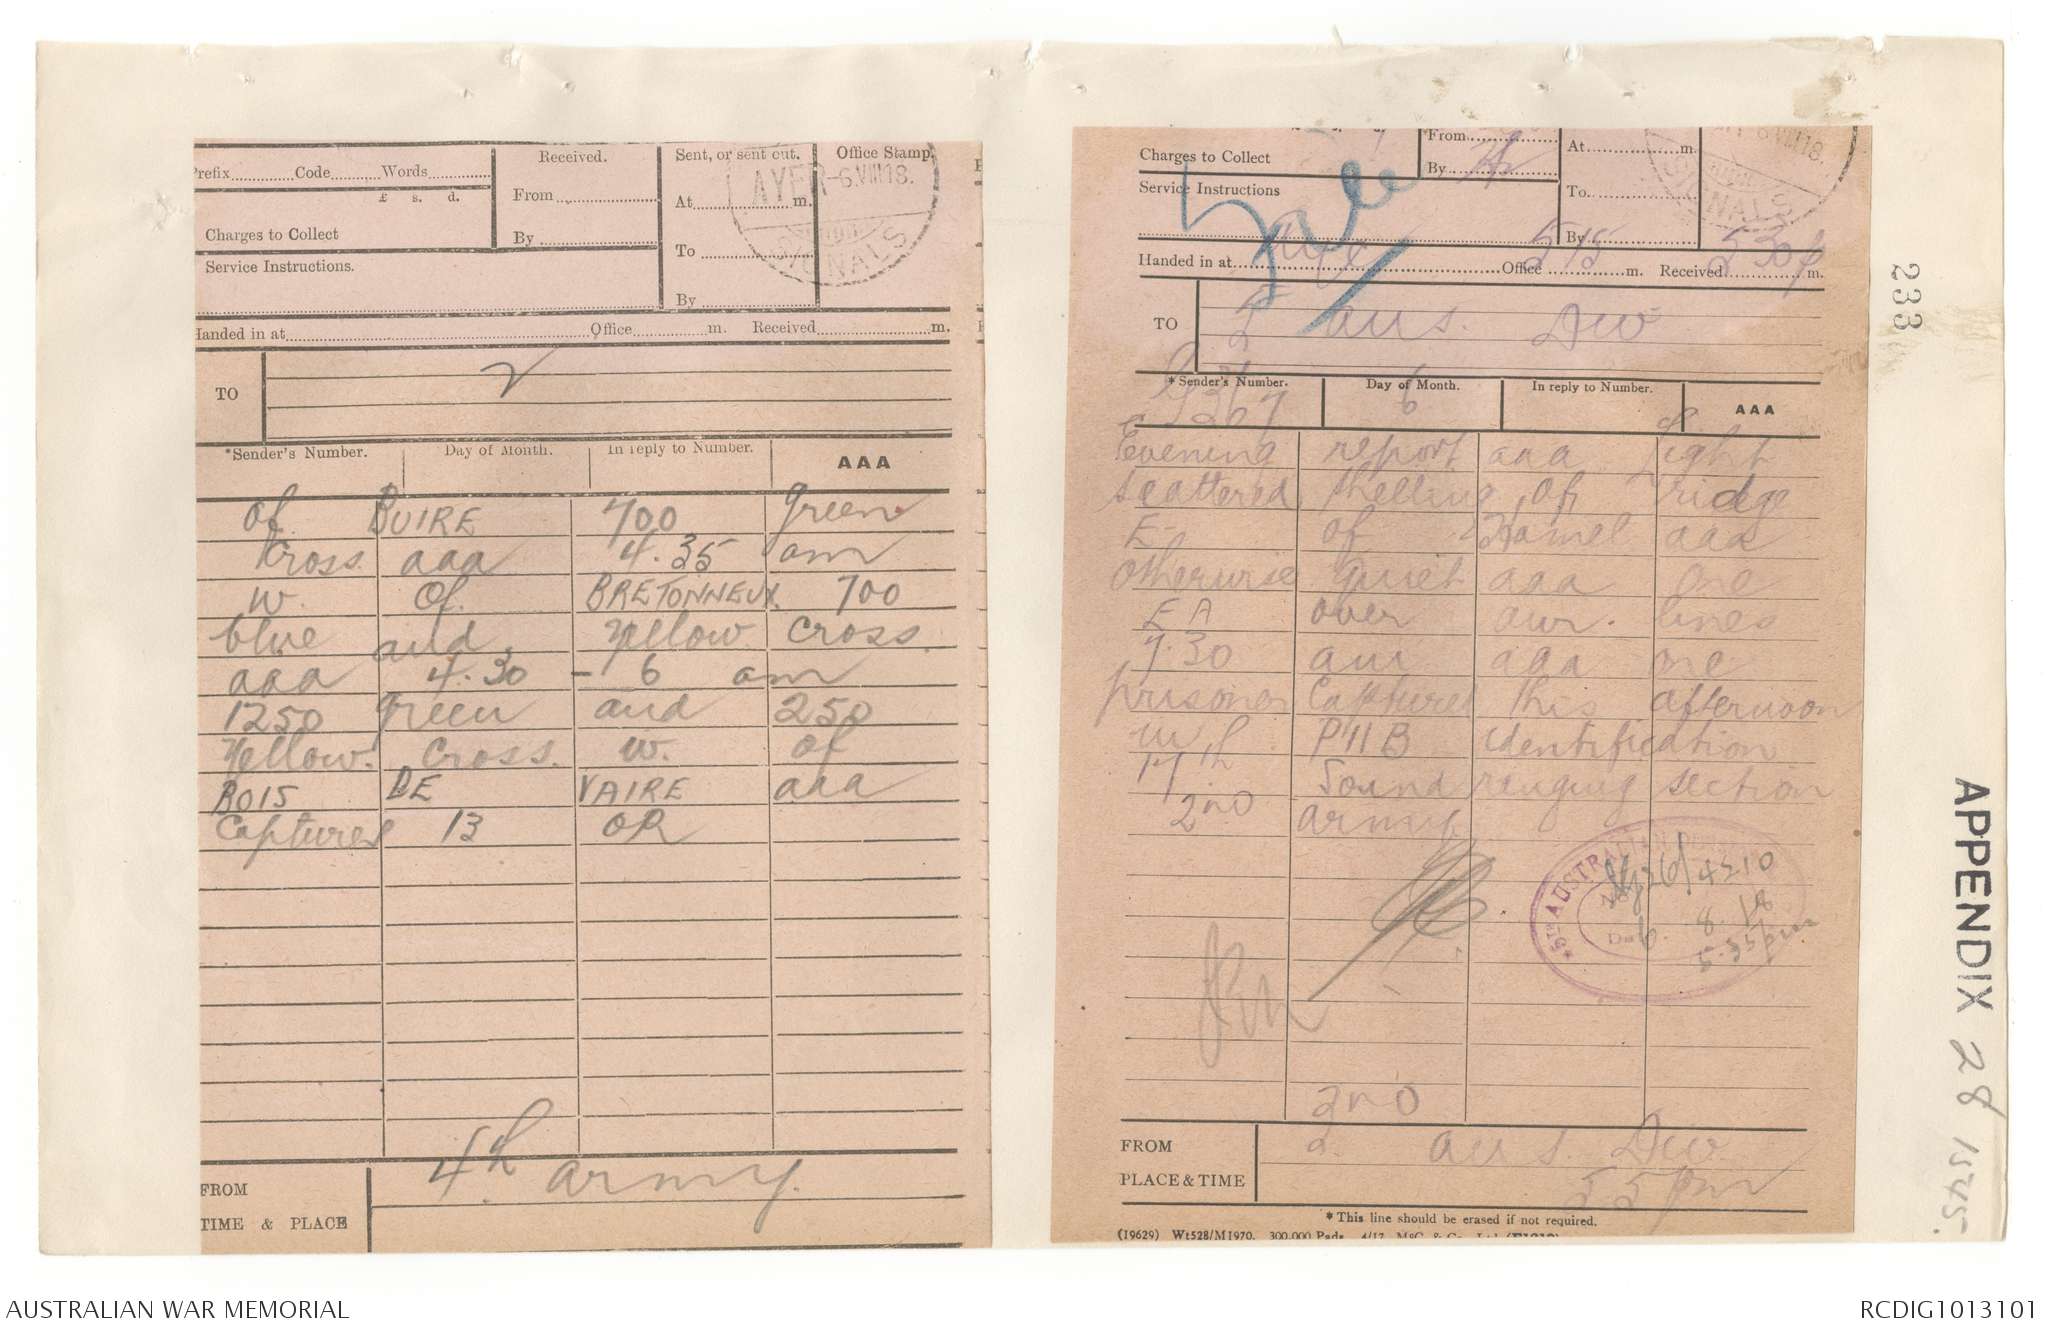 Prefix.......... Code.......... Words..........
£ s. d.
Charges to Collect
Service Instructions.
Received.
From
By
Sent, or sent out.
At m.
To
By
Office Stamp.
-6.VIII18.
SIGNALS
Handed in at Office m. Received m.
TO
*Sender's Number. Day of Month. In reply to Number. AAA
of BUIRE 700 green
Cross aaa 4.35 am
W. of BRETONNEUX. 700
blue and yellow cross.
aaa 4.30 - 6 am
1250 green and 250
Yellow. Cross. W. of
BOIS DE VAIRE aaa
Captures 13 OR
FROM 4th army.
TIME & PLACE
Charges to Collect
Service Instructions
From
By
At m
To
By
6.VIII18.
SIGNALS
Handed in at Office 515 m. Received 530p m.
TO 5 aus. Div
*Sender's Number. Day of Month. In reply to Number. AAA
G367 6
Evening report aaa Light
scattered shelling of ridge
E of Hamel aaa
otherwise quiet aaa one
EA over our lines
7.30 am aaa one
prisoner captured this afternoon
17th Sound ranging section
2nd army
5TH AUSTRALIAN
4210
6. 8.18
5.35pm
2nd
FROM 2. aus. Div.
PLACE & TIME 5.5 pm
*This line should be erased if not required.
(19629) Wt528/M1970. 300,000 Pads. 4/17. McC. & Co., Ltd. (E1213)
233
APPENDIX 28 1545.
AUSTRALIAN WAR MEMORIAL
RCDIG1013101